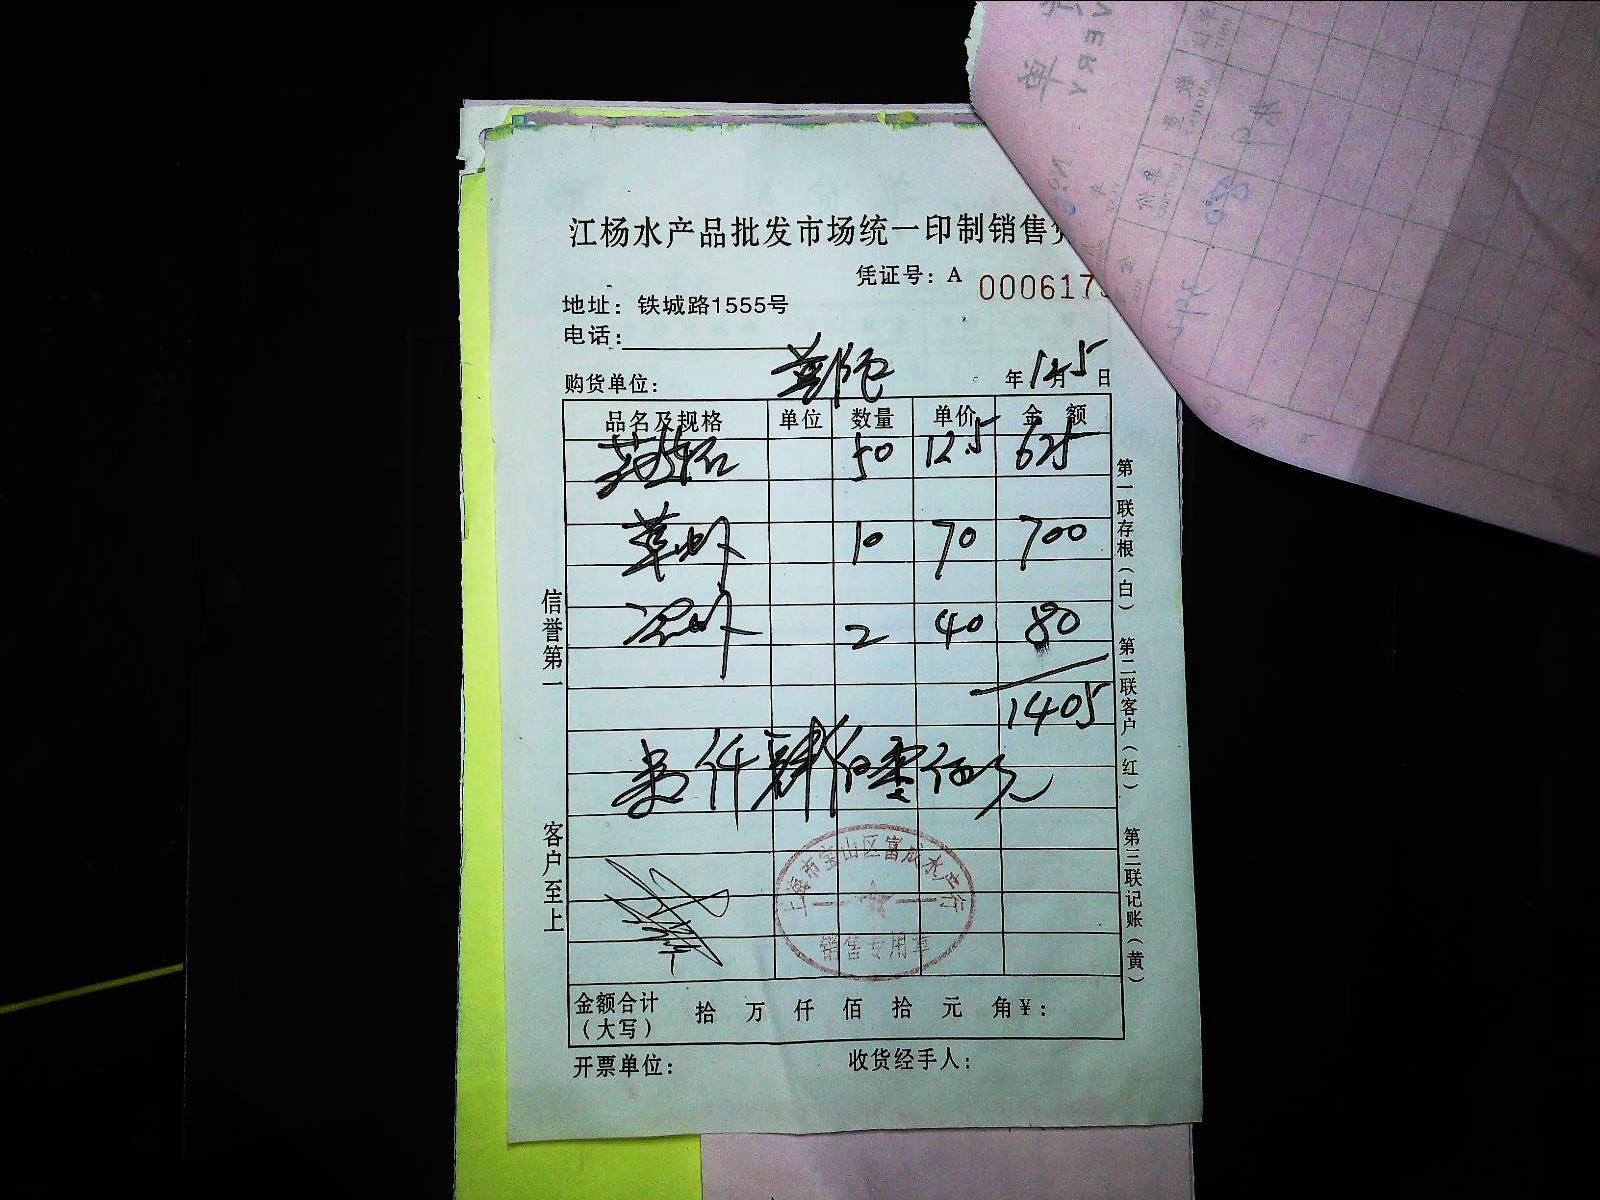 江杨水产品批发市场统一印制销售
凭证号：A 000617
地址：铁城路1555号
电话：
购货单位： 年12月5日
品名及规格 单位 数量 单价 金额
50 12.5 625
草虾 10 70 700
2 40 80
1405
壹仟肆佰零伍元
上海市宝山区富成水产行
销售专用章
金额合计（大写） 拾 万 仟 佰 拾 元 角 ¥：
开票单位： 收货经手人：
信誉第一 客户至上
第一联存根（白） 第二联客户（红） 第三联记账（黄）
VERY
单